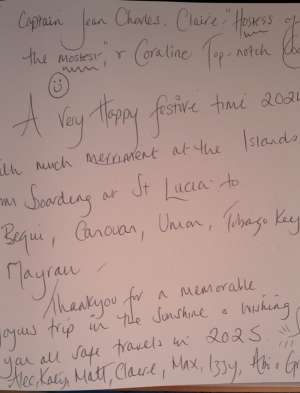 Captain Jean Charles, Claire "Hostess of
the mostest", & Coraline Top-notch
A Very Happy festive time 202
with much merriment at the Islands
Boarding at St Lucia to
Bequi, Canouan, Union, Tobago Keys
Mayrau
Thankyou for a memorable
joyous trip in the Sunshine & wishing
you all safe travels in 2025
Alec, Katy, Matt, Claire, Max, Izzy, Abi &